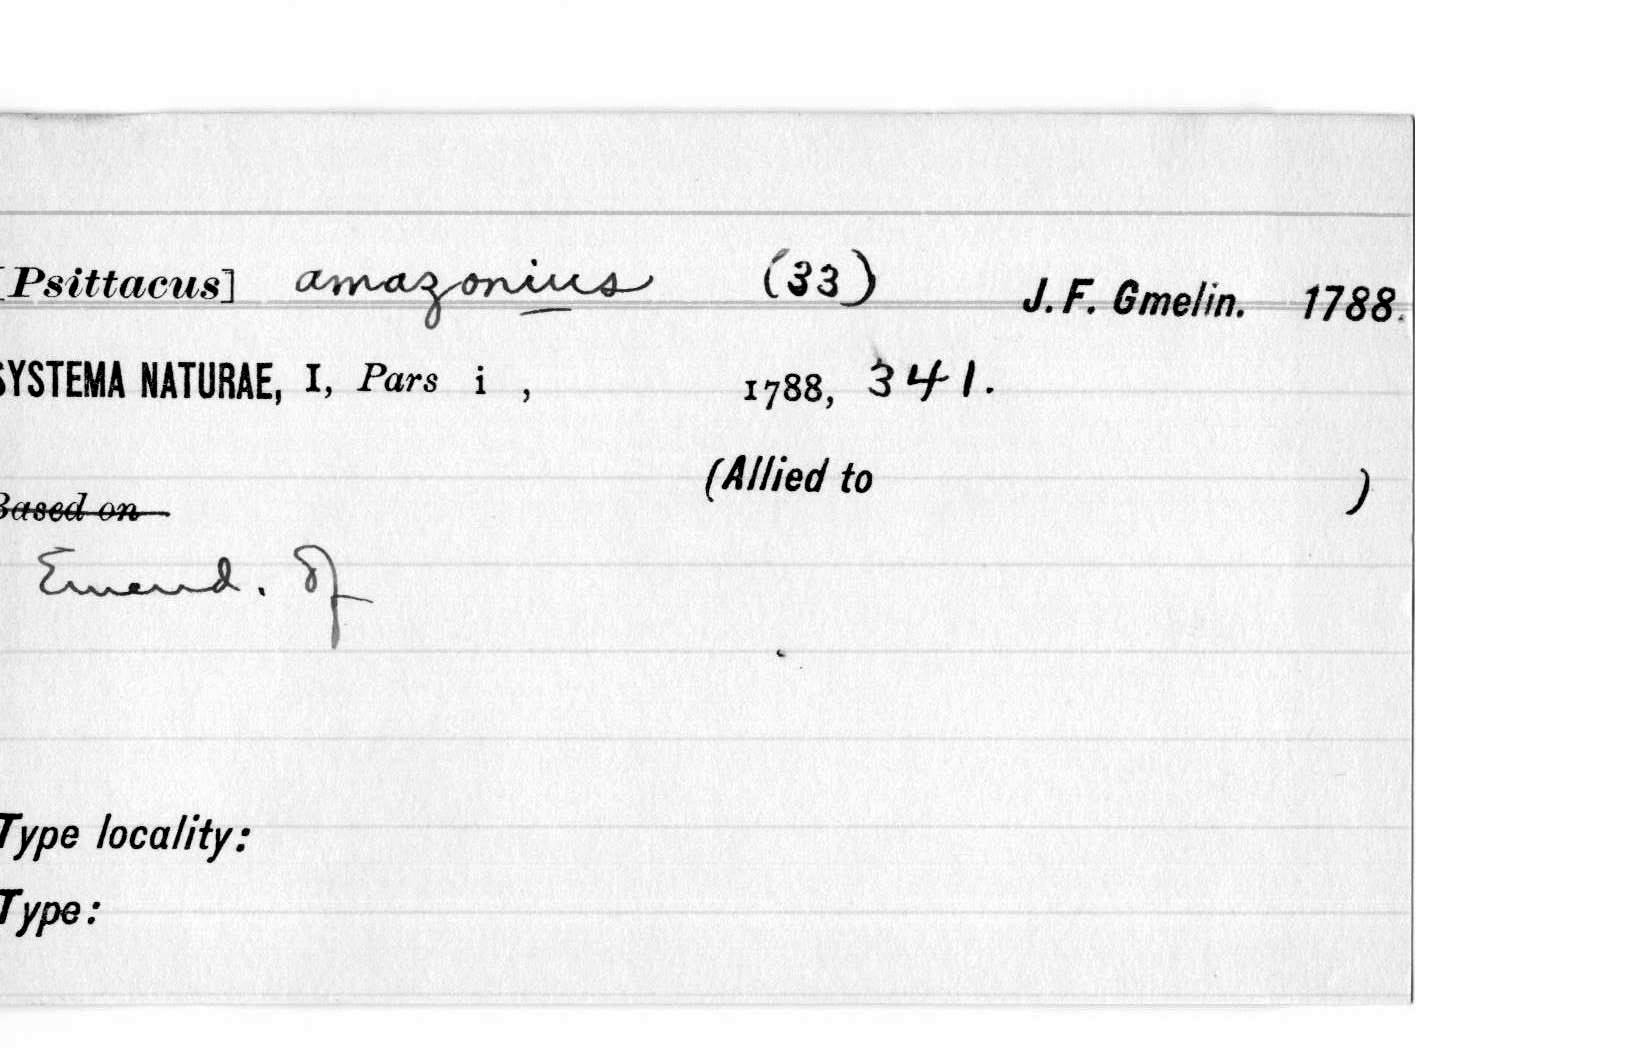 [Psittacus] amazonius (33) J. F. Gmelin. 1788.
SYSTEMA NATURAE, I, Pars i , 1788, 341.
(Allied to )
Based on
Emend. of
Type locality:
Type: